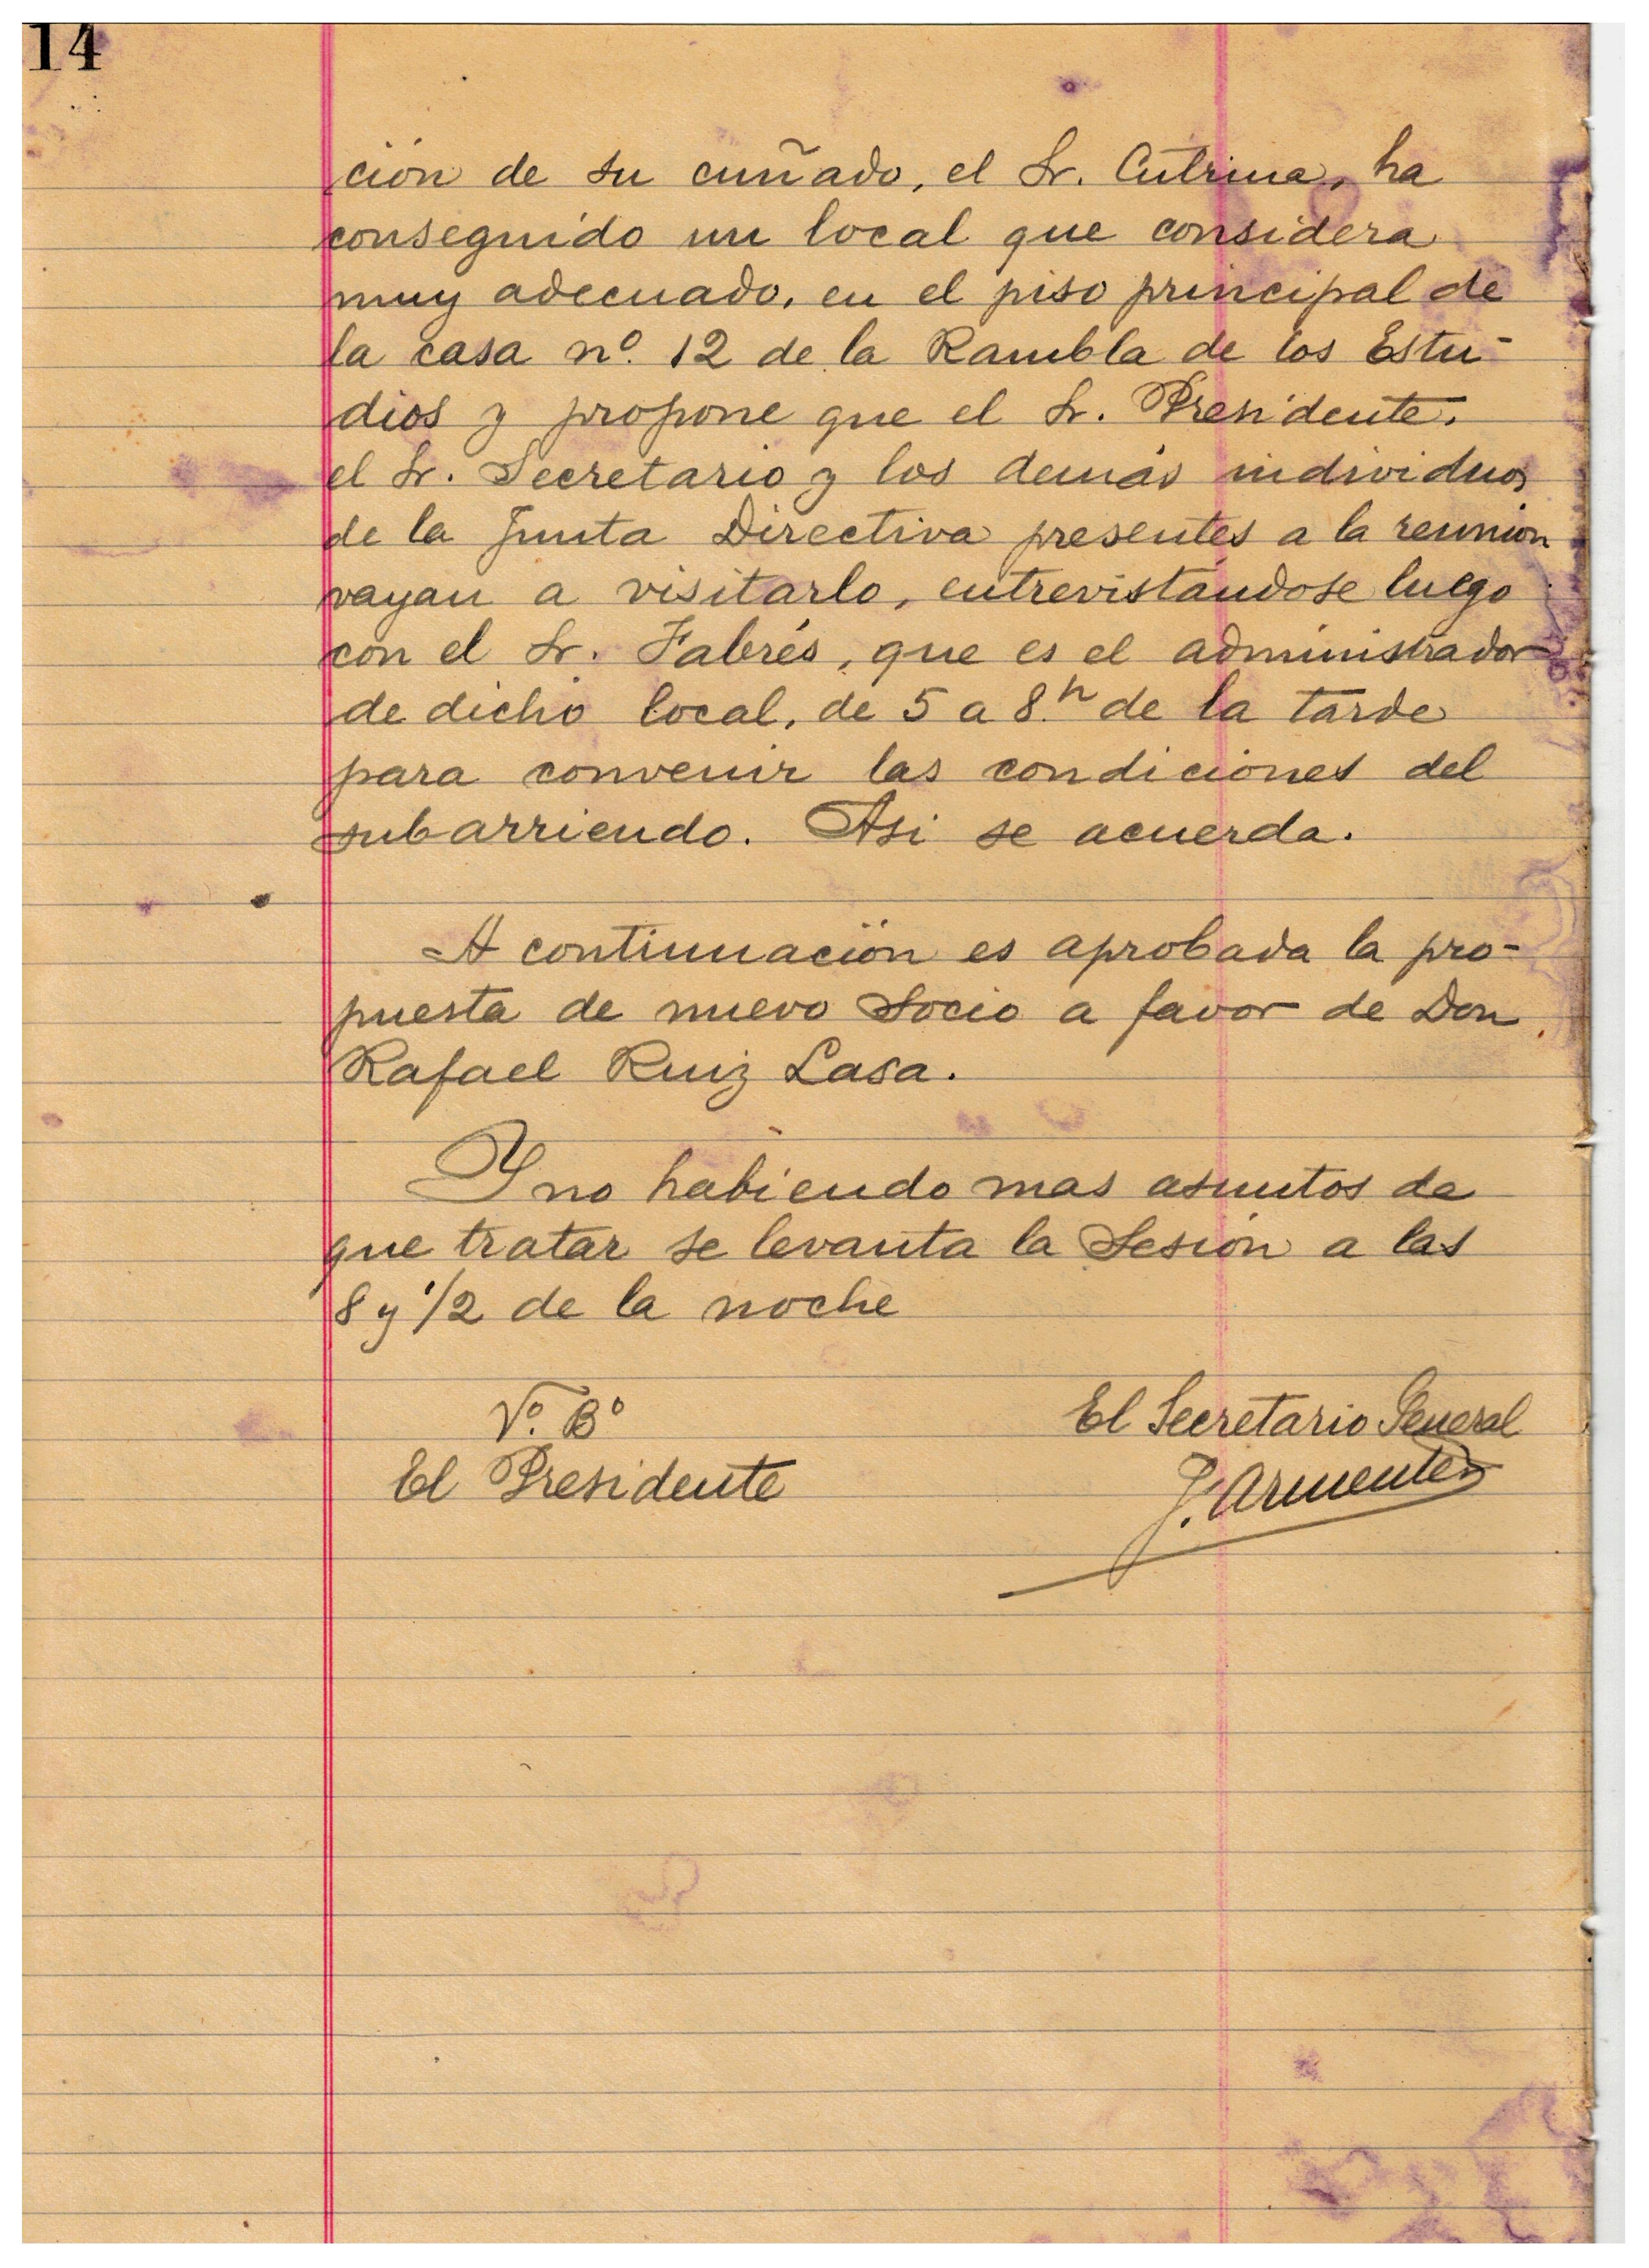 14
ción de su cuñado, el Sr. Cutrina, ha
conseguido un local que considera
muy adecuado, en el piso principal de
la casa nº. 12 de la Rambla de los Estu-
dios y propone que el Sr. Presidente,
el Sr. Secretario y los demás individuos
de la Junta Directiva presentes a la reunión
vayan a visitarlo, entrevistándose luego
con el Sr. Fabrés, que es el administrador
de dicho local, de 5 a 8.h de la tarde
para convenir las condiciones del
subarriendo. Asi se acuerda.
A continuación es aprobada la pro-
puesta de nuevo Socio a favor de Don
Rafael Ruiz Lasa.
Y no habiendo mas asuntos de
que tratar se levanta la Sesión a las
8 y 1/2 de la noche
Vº. Bº
El Secretario General
El Presidente
J. Armenter